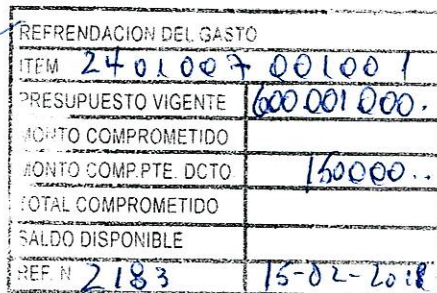 REFRENDACION DEL GASTO
ITEM 2401007 001001
PRESUPUESTO VIGENTE 600.001.000.
MONTO COMPROMETIDO
MONTO COMP.PTE. DCTO. 150000..
TOTAL COMPROMETIDO
SALDO DISPONIBLE
REF. N 2183 15-02-2018